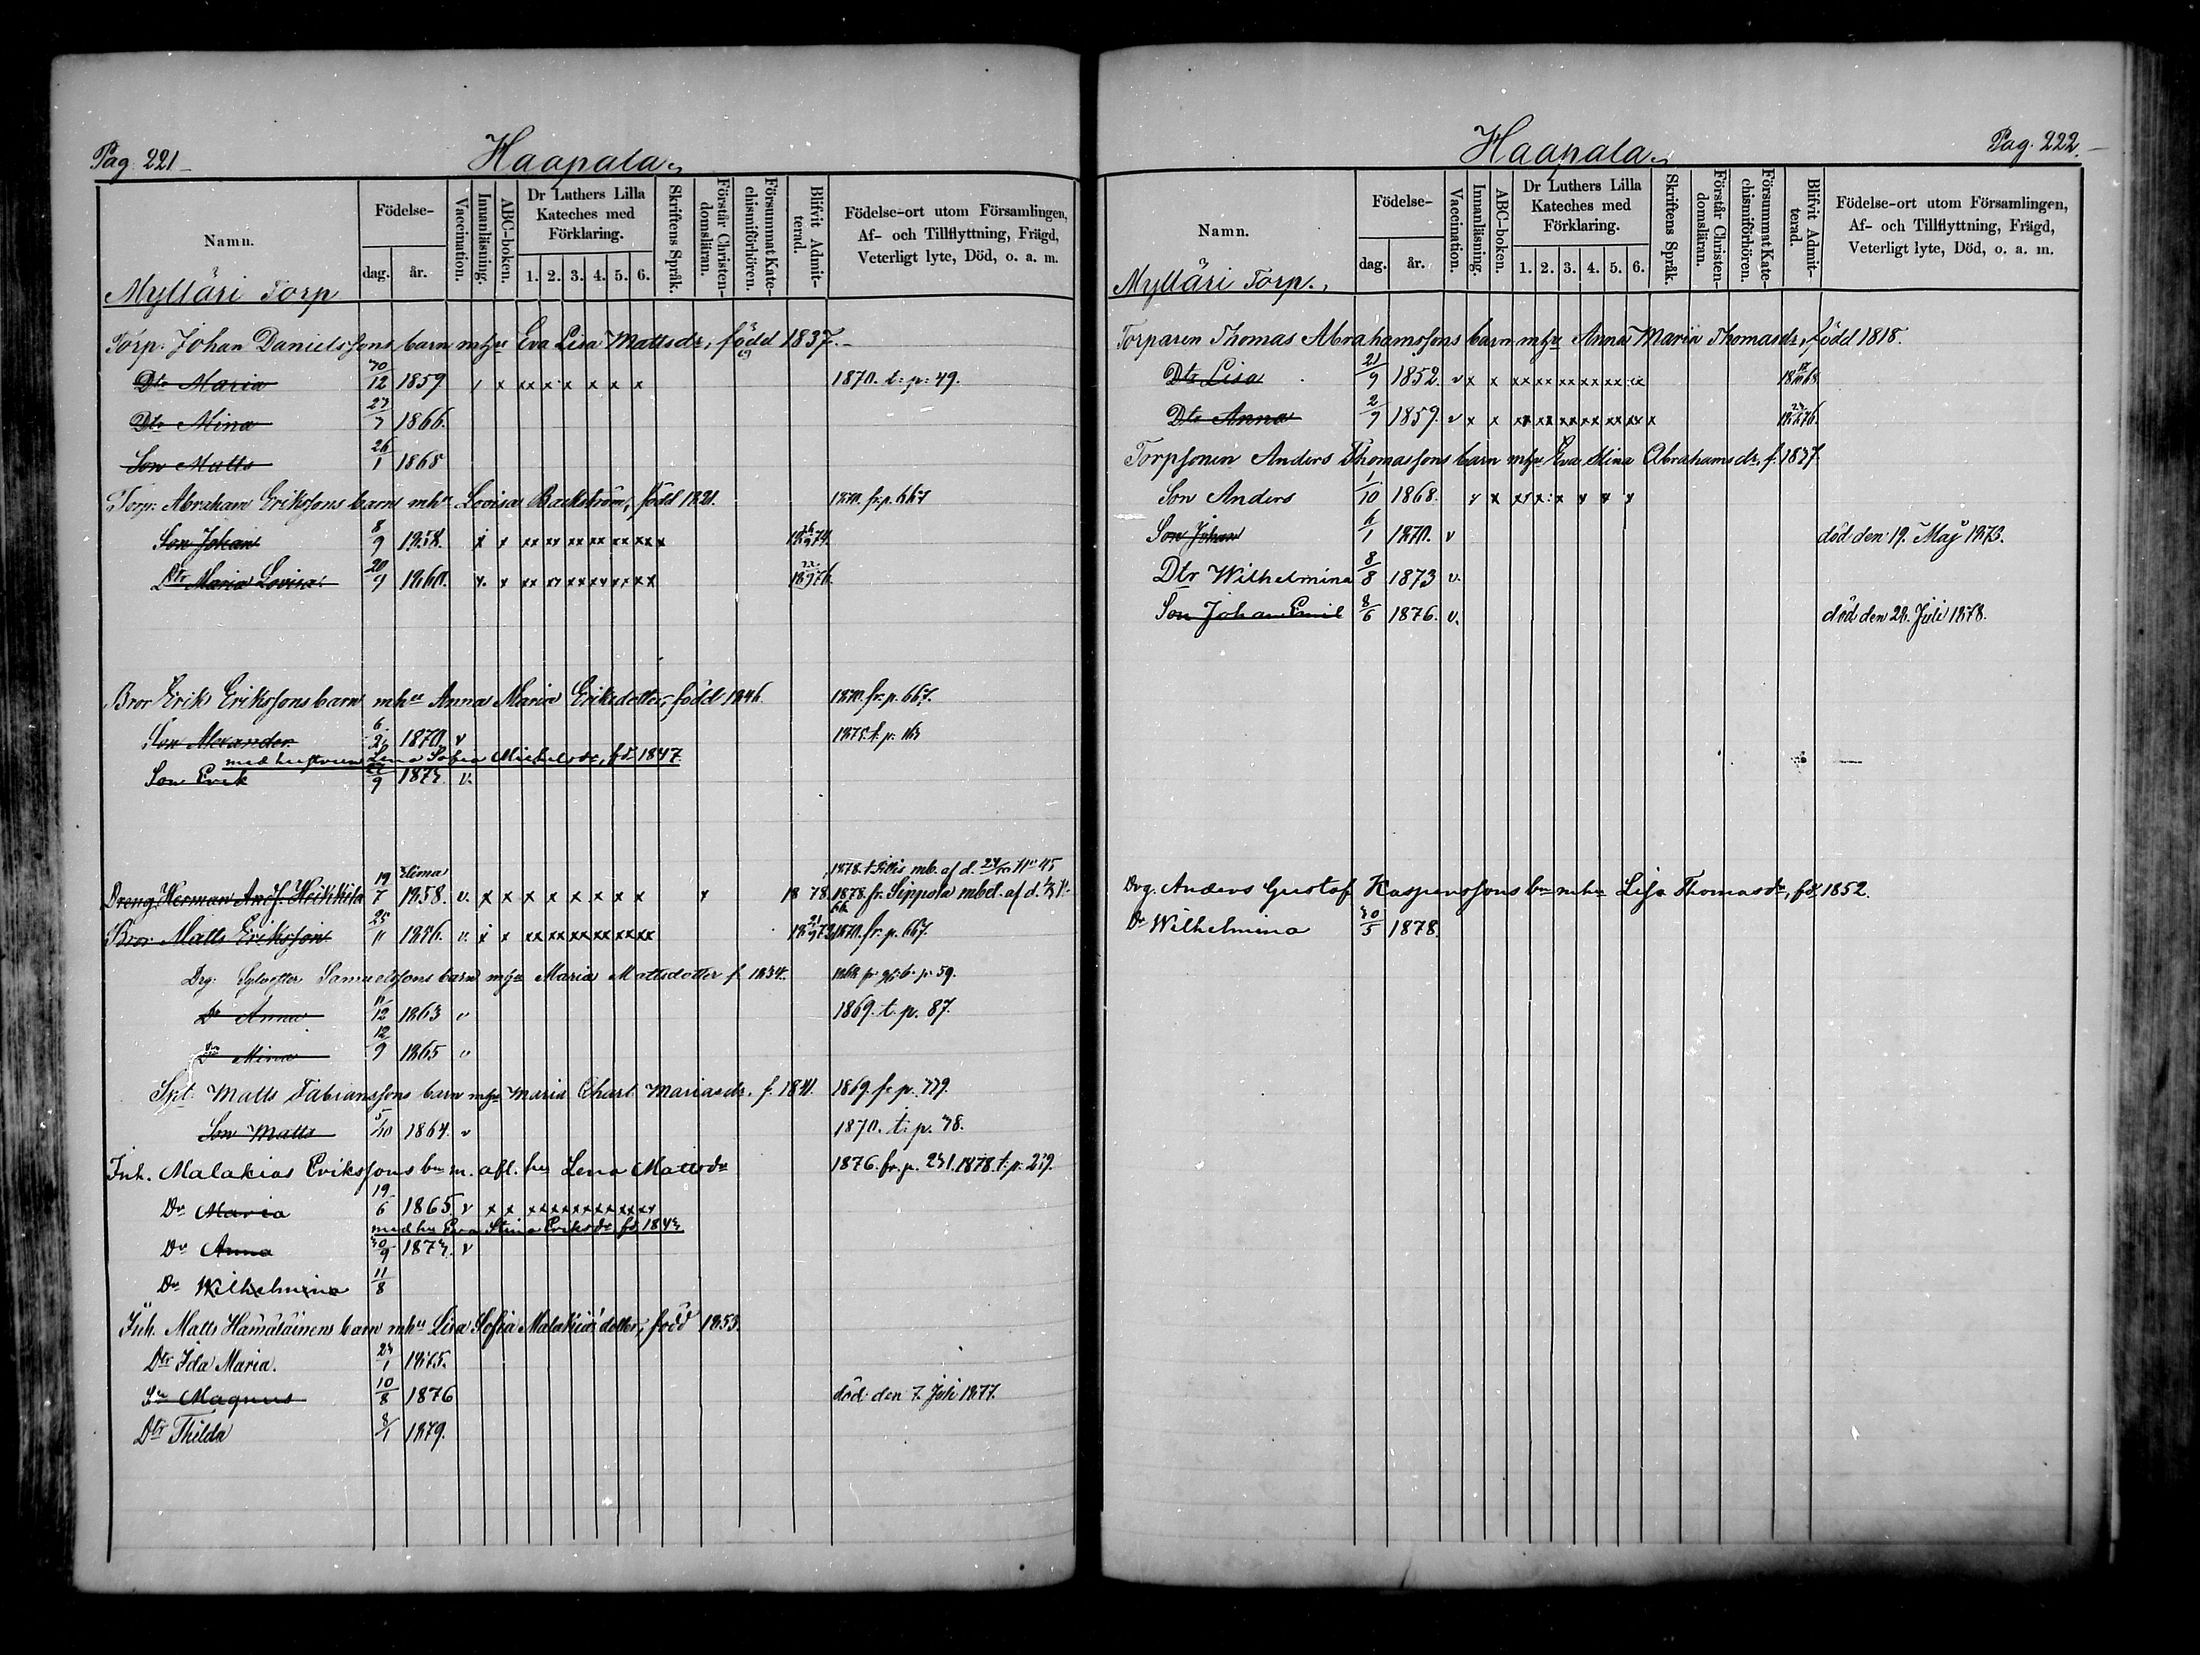 Pag. 221
Haapala
Namn.
Födelse-
dag.
år.
Vaccination.
Innanläsning.
ABC-boken.
Dr Luthers Lilla Kateches med Förklaring.
1. 2. 3. 4. 5. 6.
Skriftens Språk.
Förstår Christendomsläran.
Försummat Katechismiförhören.
Blifvit Admitterad.
Födelse-ort utom Församlingen, Af- och Tillflyttning, Frägd, Veterligt lyte, Död, o. a. m.
Mylläri Torp
Torp. Johan Danielssons barn mhu Eva Lisa Mattsdr, född 1837.
Dtr Maria 30/12 1859 1870. t. p. 49.
Dtr Mina 1866.
Son Matts 26/1 1868
Torp. Abraham Erikssons barn mhu Lovisa Backström, född 1821. 1870. fr. p. 667
Son Johan 8/9 1858.
Dtr Maria Lovisa 20/9 1860.
Bror Erik Erikssons barn mhu Anna Maria Eriksdotter, född 1846. 1870. fr. p. 667.
Son Alexander 1870 v
med hustrun Lena Sofia Michelsdr, fd. 1847
Son Erik 1873. v.
Elima
Dreng Herman Andf. Heikkilä 19/7 1858. v. 18 78. 1878. fr. Sippola mbd. af d.
Bror Matts Eriksson 25/11 1856. v. 1870. fr. p. 667.
Drg. Sylvester Samuelssons barn mhu Maria Mattsdotter f. 1834.
Dr Anna 11/12 1863 v 1869. t. p. 87.
Dr Mina 12/9 1865 v
Spt. Matts Fabianssons barn mhu Maria Charl. Mariasdr. f. 1841. 1869. fr. p. 779.
Son Matts 5/10 1864. v 1870. t. p. 78.
Inh. Malakias Erikssons bn m. afl. hu Lena Mattsdr 1876. fr. p. 231. 1878. t. p. 279.
Dr Maria 19/6 1865 v
med hu Eva Stina Eriksdr fd. 1843
Dr Anna 30/9 1873. v
Dr Wilhelmina 11/8
Inh. Matts Hämäläinens barn mhu Lisa Sofia Malakiasdotter, född 1853.
Dtr Ida Maria. 23/1 1875.
Sn Magnus 10/8 1876 död den 7. Juli 1877.
Dtr Thilda 8/1 1879.
Haapala
Pag. 222
Namn.
Födelse-
dag.
år.
Vaccination.
Innanläsning.
ABC-boken.
Dr Luthers Lilla Kateches med Förklaring.
1. 2. 3. 4. 5. 6.
Skriftens Språk.
Förstår Christendomsläran.
Försummat Katechismiförhören.
Blifvit Admitterad.
Födelse-ort utom Församlingen, Af- och Tillflyttning, Frägd, Veterligt lyte, Död, o. a. m.
Mylläri Torp.
Torparen Thomas Abrahamssons barn mhu Anna Maria Thomasdr, född 1818.
Dtr Lisa 21/9 1852. v
Dtr Anna 2/7 1859. v
Torpsonen Anders Thomassons barn mhu Eva Stina Abrahamsdr, f. 1837.
Son Anders 1/10 1868.
Son Johan 6/1 1870. v död den 19. Maj 1873.
Dtr Wilhelmina 8/8 1873 v.
Son Johan Emil 8/6 1876. v. död den 26. Juli 1878.
Drg. Anders Gustaf Kasperssons bn mhu Lisa Thomasdr, fd. 1852.
Dr Wilhelmina 30/5 1878.